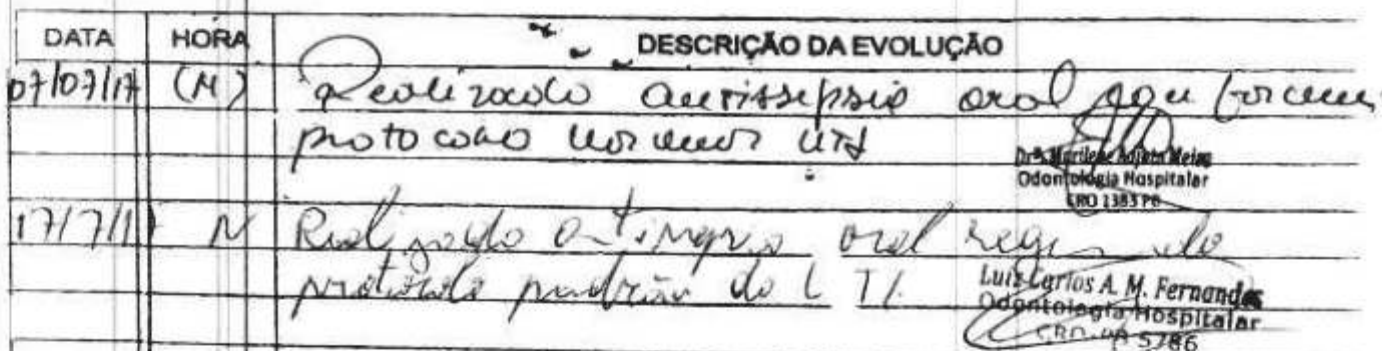 DATA HORA DESCRIÇÃO DA EVOLUÇÃO
07/07/17 (M) Realizado antissepsia oral
protocolo UTI
Drª. Marilene
Odontologia Hospitalar
CRO 1383 PB
17/7/17 N Realizado oral
protocolo padrão da UTI.
Luiz Carlos A. M. Fernandes
Odontologia Hospitalar
5786